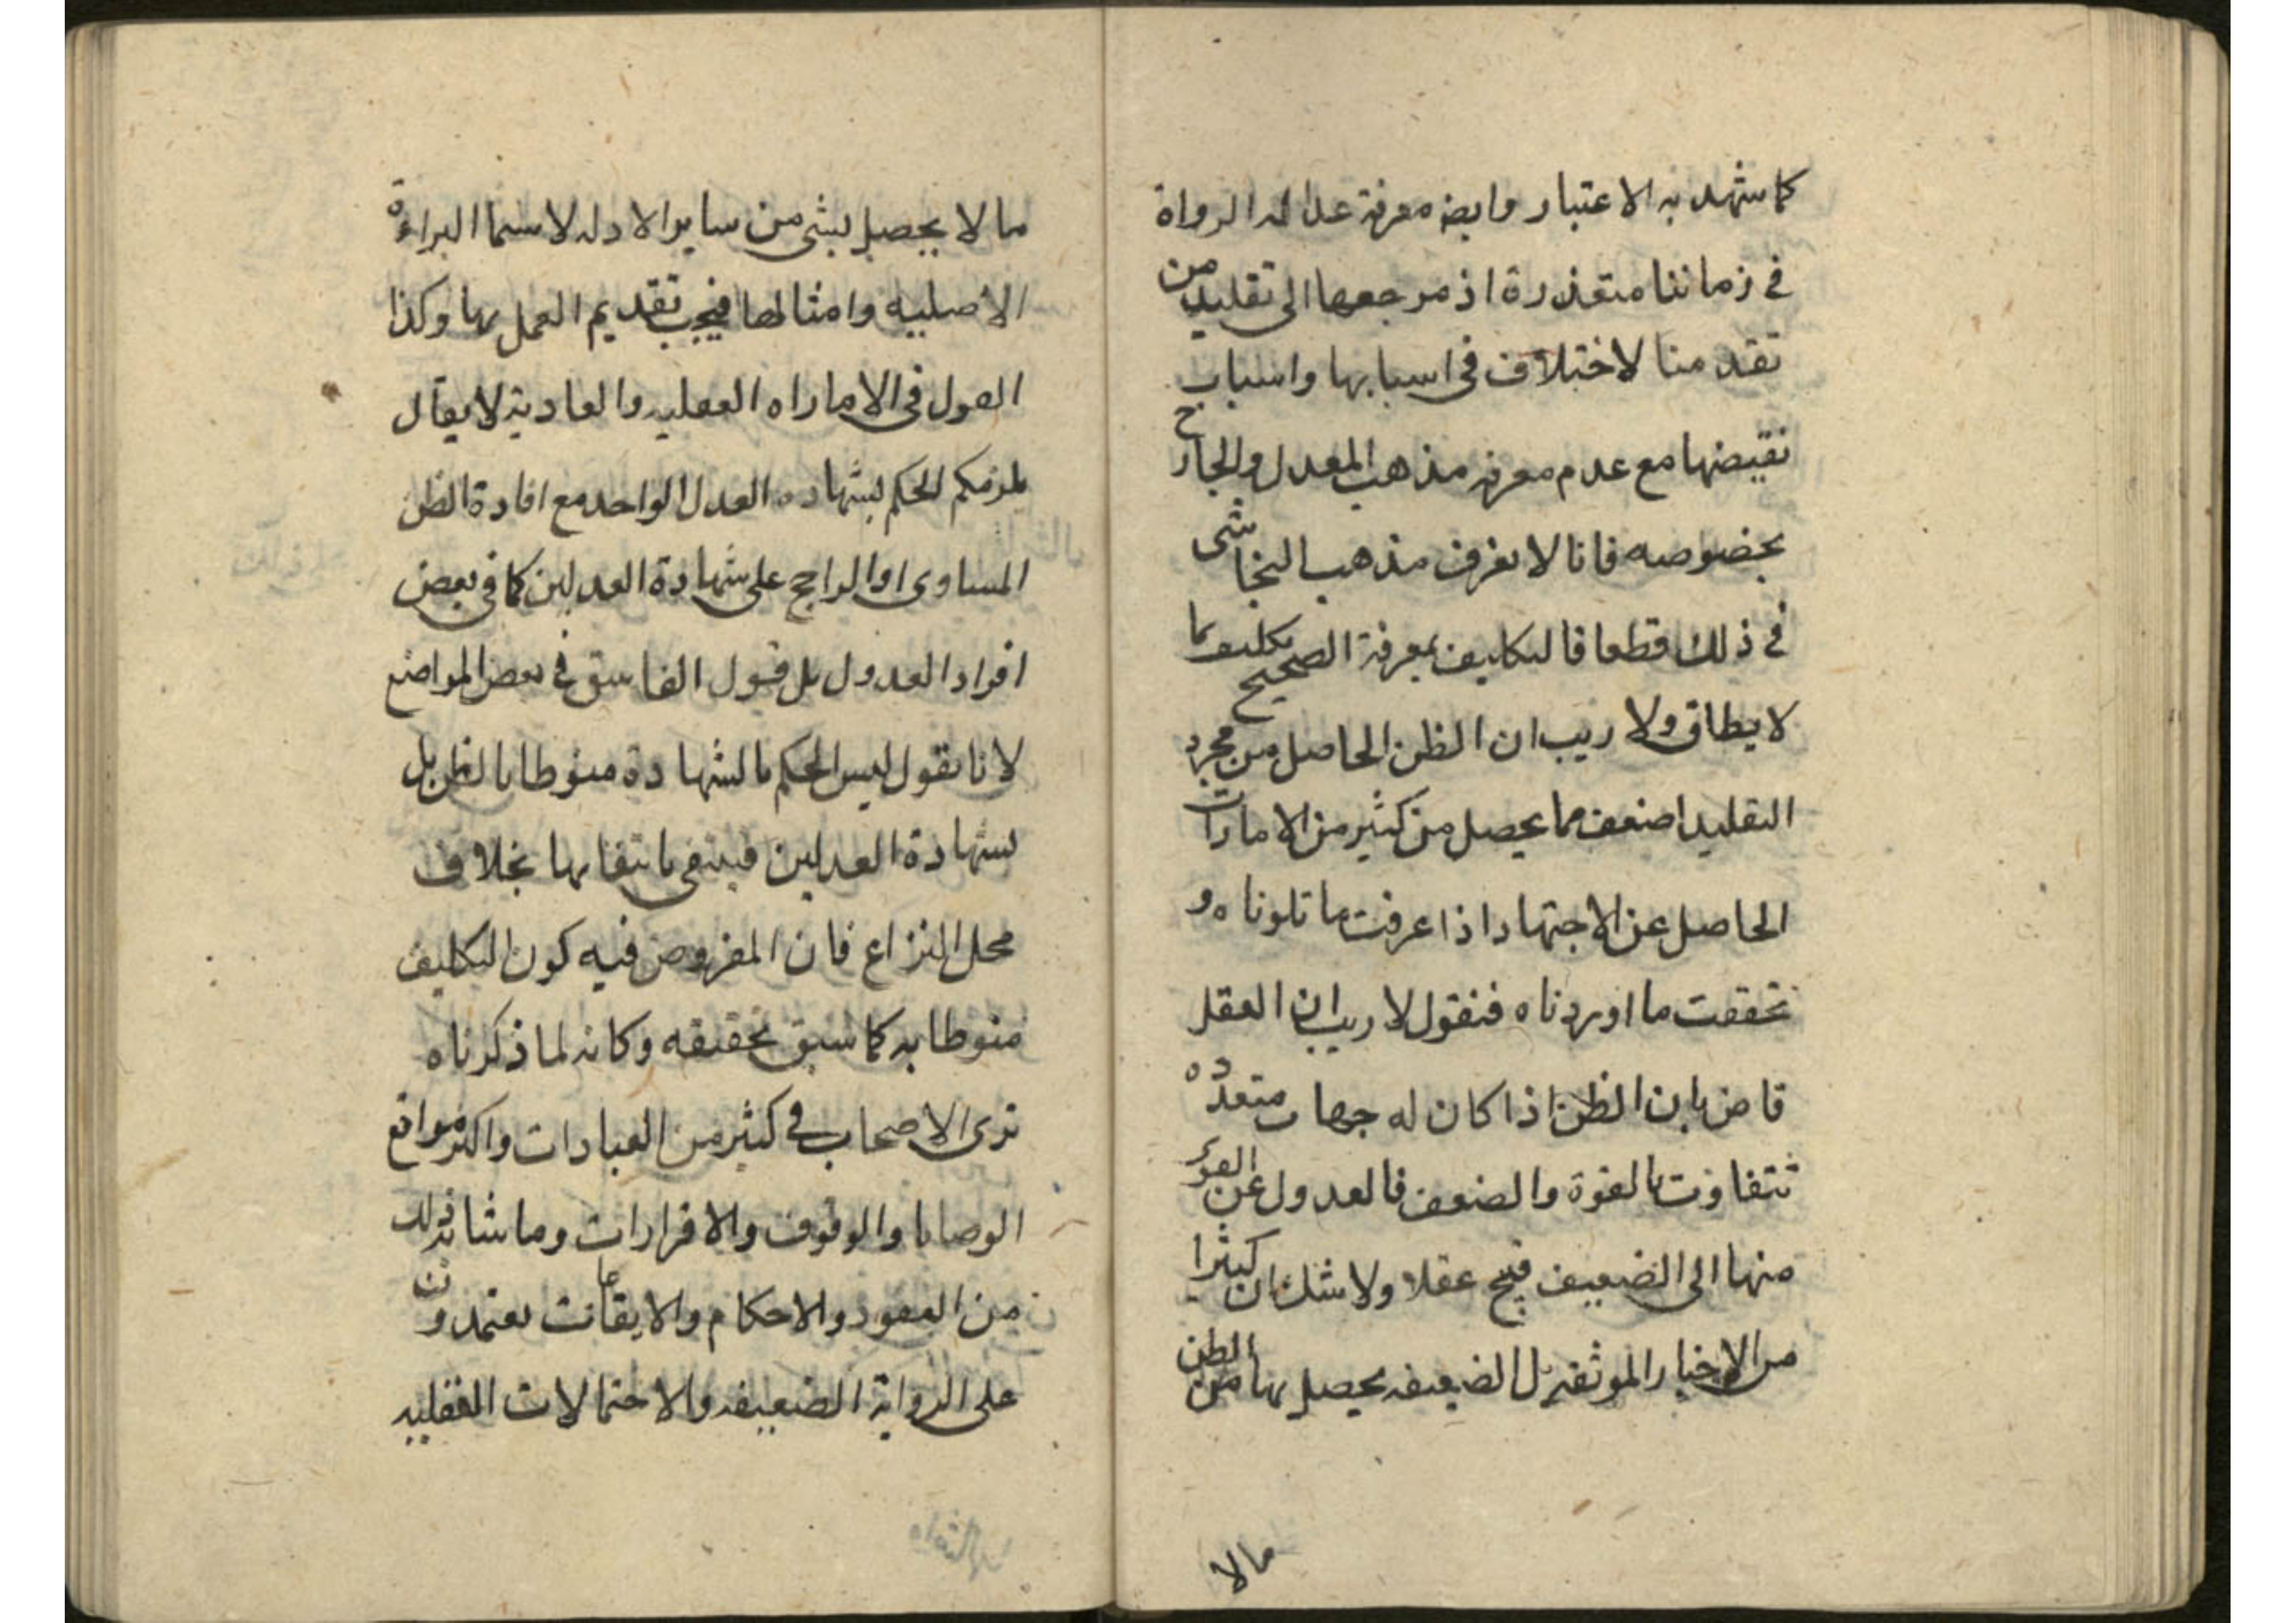 كما شهد به الاعتبار وايضا معرفة عدالة الرواة
في زماننا متعذرة اذ مرجعها الى تقليد من
تقدمنا لاختلاف في اسبابها واسباب
نقيضها مع عدم معرفة مذهب المعدل والجارح
بخصوصه فانا لا نعرف مذهب النجاشى
في ذلك قطعا فالتكليف بمعرفة الصحيح تكليف بما
لا يطاق ولا ريب ان الظن الحاصل من مجرد
التقليد اضعف مما يحصل من كثير من الامارات
الحاصل عن الاجتهاد اذا عرفت ما تلوناه و
تحققت ما اوردناه فنقول لا ريب ان العقل
قاض بان الظن اذا كان له جهات متعدده
تتفاوت بالقوة والضعف فالعدول عن القوى
منها الى الضعيف قبيح عقلا ولا شك ان كثيرا
من الاخبار الموثقة بل الضعيفه يحصل بها من الظن
مالا
ما لا يحصل بشى من ساير الادله لاسيما البراءة
الاصليه وامثالها فيجب تقديم العمل بها وكذا
القول فى الاماراه العقليه والعادية لا يقال
يلزمكم الحكم بشهاده العدل الواحد مع افادة الظن
المساوى او الراجح على شهادة العدلين كما فى بعض
افراد العدول بل قول الفاسق في بعض المواضع
لانا نقول ليس الحكم بالشهادة منوطا بالظن بل
بشهادة العدلين فينتفى بانتفائها بخلاف
محل النزاع فان المفروض فيه كون التكليف
منوطا به كما سبق تحقيقه وكانه لما ذكرناه
ترى الاصحاب في كثير من العبادات واكثر مواقع
الوصايا والوقوف والاقرارات وما شابه ذلك
من العقود والاحكام والايقاعات يعتمدون
على الرواية الضعيفه والاحتمالات العقليه